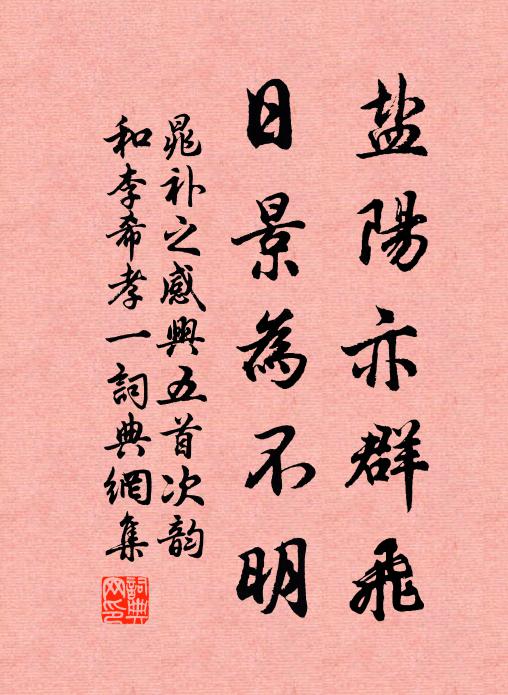 盐陽亦群飛
日景為不明
晁补之感興五首次韵
和李希孝一詞典網集
詞典网印